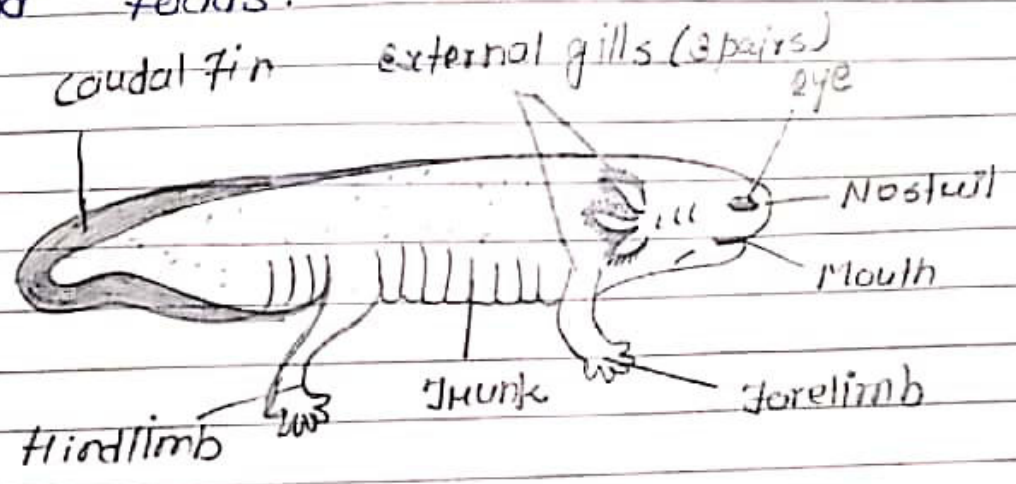 caudal fin
external gills (3 pairs)
eye
Nostril
Mouth
Trunk
Forelimb
Hindlimb